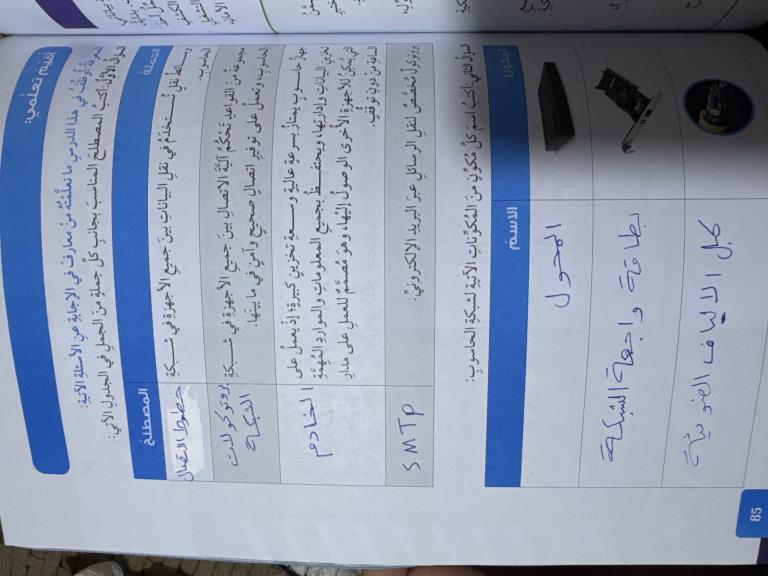 أقيّم تعلّمي:
المعرفة: أوظّف في هذا الدرس ما تعلّمته من معارف في الإجابة عن الأسئلة الآتية:
السؤال الأول: أكتب المصطلح المناسب بجانب كل جملة من الجمل في الجدول الآتي:
الجملة
المصطلح
وسائط نقل تُستخدَم في نقل البيانات بين جميع الأجهزة في شبكة
الحاسوب.
خطوط الاتصال
مجموعة من القواعد تحكم آلية الاتصال بين جميع الأجهزة في شبكة
الحاسوب، وتعمل على توفير اتصال صحيح وآمن في ما بينها.
بروتوكولات
الشبكة
جهاز حاسوب يمتاز بسرعة عالية وسعة تخزين كبيرة؛ إذ يعمل على
تخزين البيانات وإدارتها، ويحتفظ بجميع المعلومات والموارد المهمّة
التي يُمكِن للأجهزة الأخرى الوصول إليها، وهو مُصمَّم للعمل على مدار
الساعة من دون توقّف.
الخادم
بروتوكول مُخصَّص لنقل الرسائل عبر البريد الإلكتروني.
SMTp
السؤال الثاني: أكتب اسم كل مُكوِّن من المُكوِّنات الآتية لشبكة الحاسوب:
المكوّن
الاسم
المحول
بطاقة واجهة الشبكة
كبل الالياف الضوئية
85